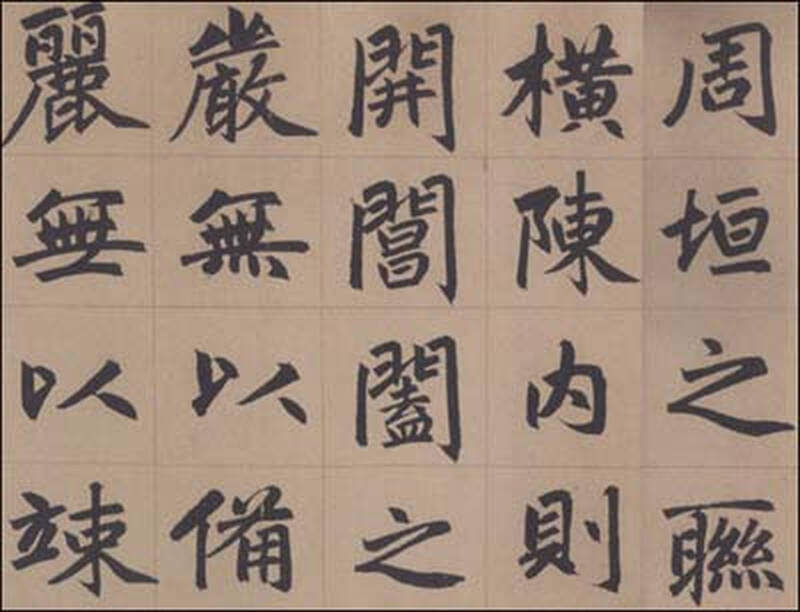 周垣之聯
橫陳内則
開閶闔之
嚴無以備
麗無以竦